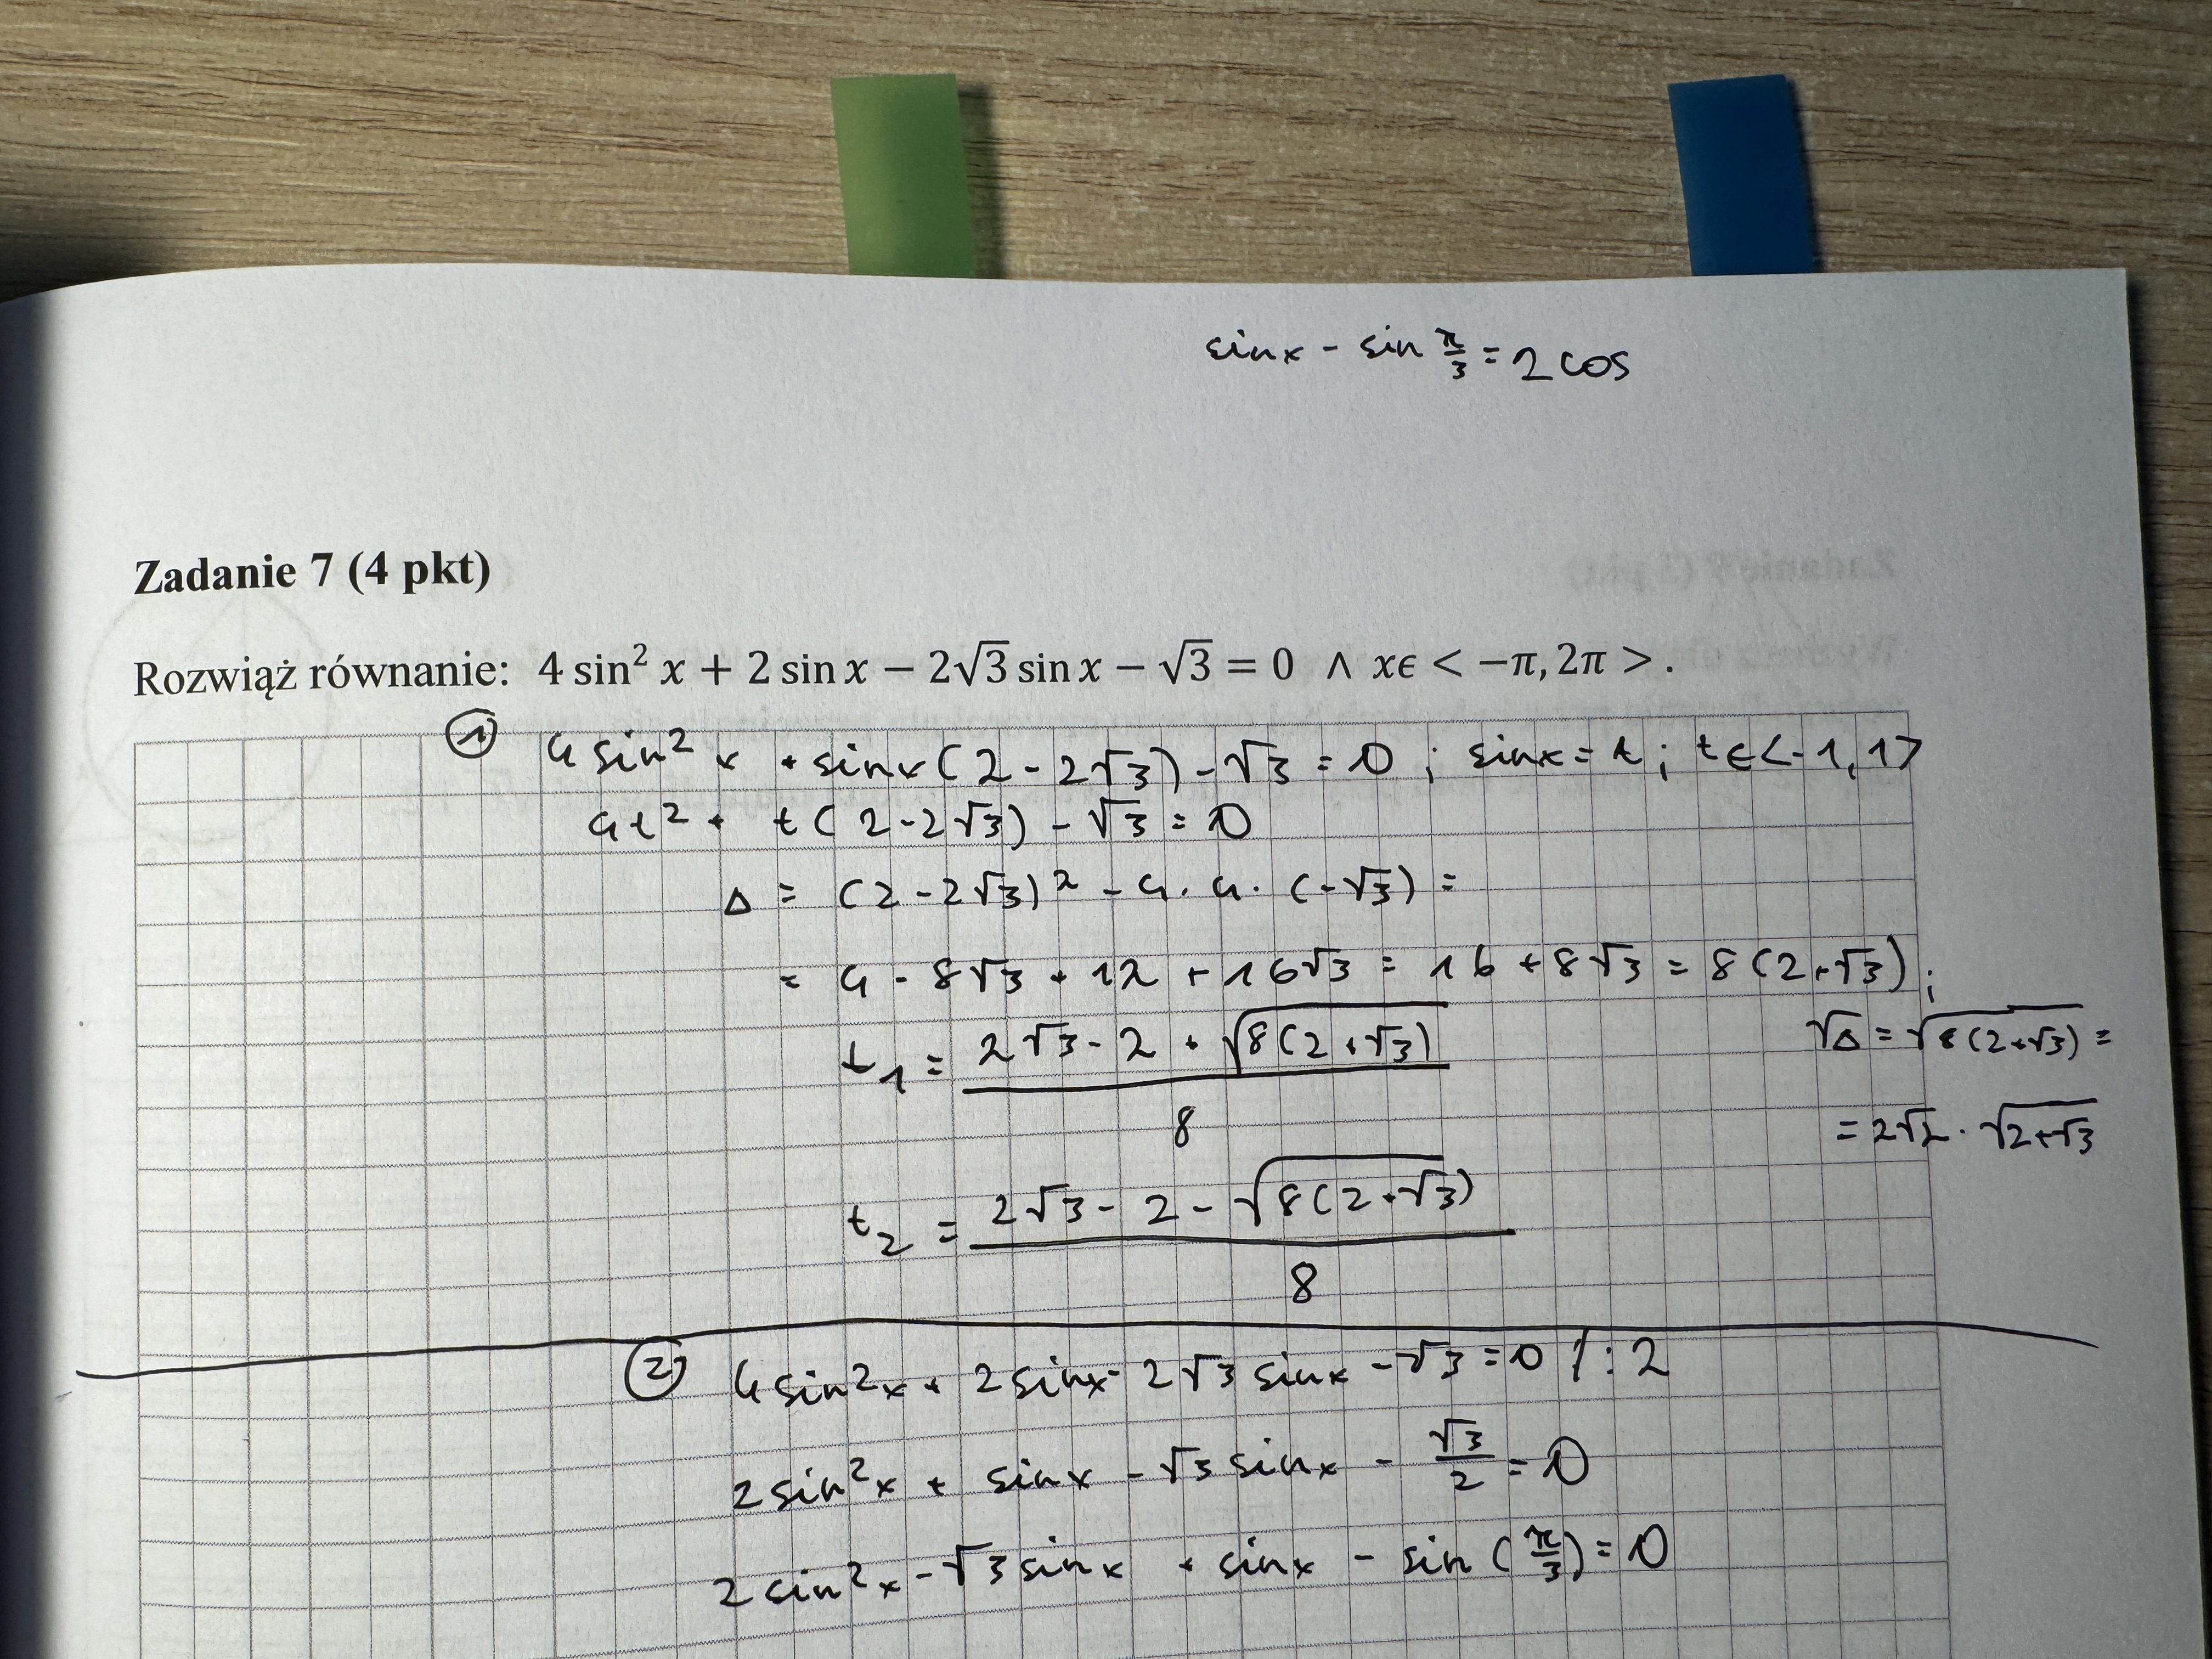 sinx - sin π/3 = 2 cos
Zadanie 7 (4 pkt)
Rozwiąż równanie: 4 sin² x + 2 sin x − 2√3 sin x − √3 = 0 ∧ xϵ < −π, 2π > .
① 4 sin² x + sinx (2 - 2√3) - √3 = 0 ; sinx = t ; t ∈ <-1, 1>
4t² + t(2 - 2√3) - √3 = 0
Δ = (2 - 2√3)² - 4 · 4 · (-√3) =
= 4 - 8√3 + 12 + 16√3 = 16 + 8√3 = 8(2+√3) ;
t₁ = (2√3 - 2 + √(8(2+√3))) / 8
√Δ = √(8(2+√3)) =
= 2√2 · √(2+√3)
t₂ = (2√3 - 2 - √(8(2+√3))) / 8
② 4 sin²x + 2 sinx - 2√3 sinx - √3 = 0 / : 2
2 sin²x + sinx - √3 sinx - √3/2 = 0
2 sin²x - √3 sinx + sinx - sin (π/3) = 0